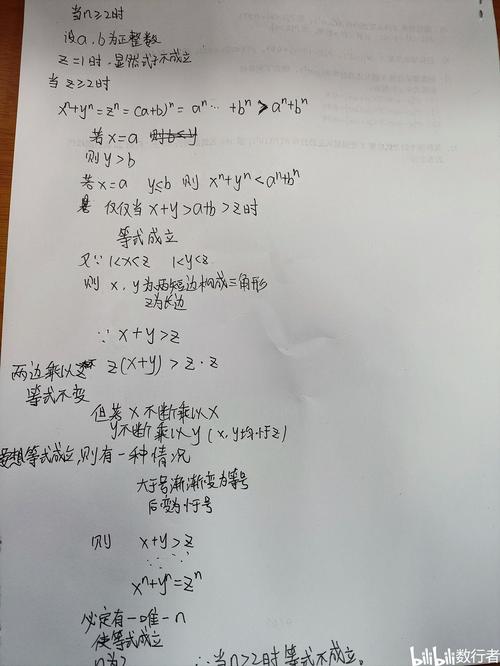 当n≥2时
设a.b为正整数
z=1时,显然式子不成立
当z≥2时
xⁿ+yⁿ=zⁿ=(a+b)ⁿ=aⁿ… +bⁿ>aⁿ+bⁿ
若x=a 则b≤y
则y>b
若x=a y≤b 则xⁿ+yⁿ<aⁿ+bⁿ
仅仅当x+y>a+b>z时
等式成立
又∵1<x<z 1<y<z
则x,y为两短边构成三角形
z为长边
∵x+y>z
两边乘以z z(x+y)>z·z
等式不变
但若x不断乘以x
y不断乘以y(x,y均小于z)
要想等式成立,则有一种情况
大于号渐渐变为等号
后变为小于号
则 x+y>z
xⁿ+yⁿ=zⁿ
必定有一唯一n
使等式成立
n为2 ∴当n>2时等式不成立。
bilibili数行者